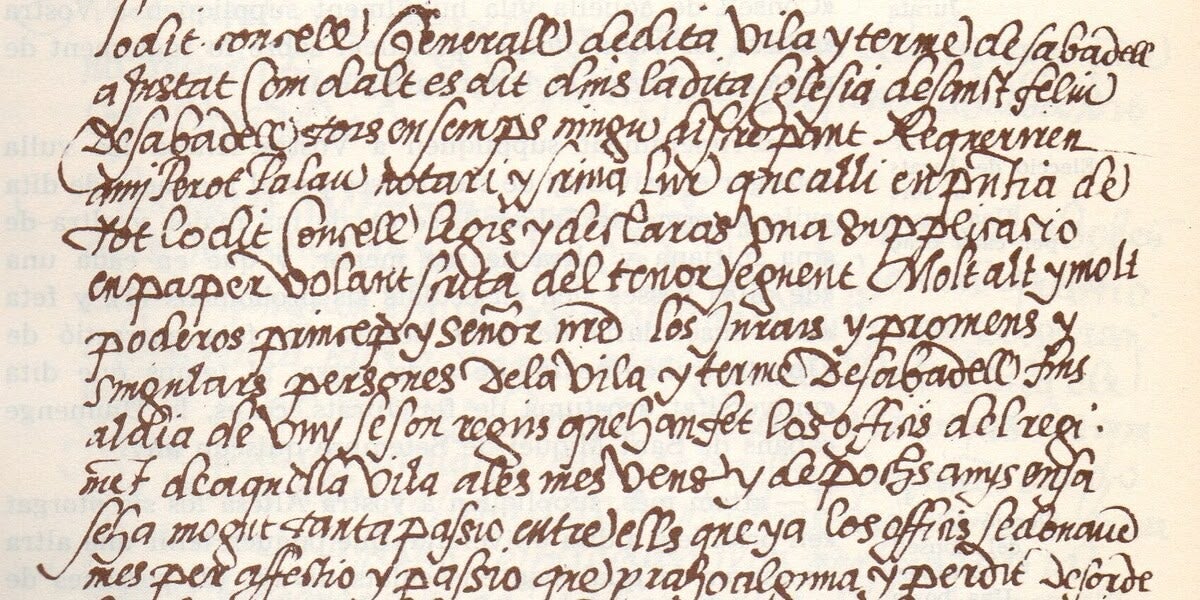 lodit concell Generall dedita vila y terme de sabadell
ajustat Com dalt es dit dins la dita sglesia de sanct feliu
de sabadell tots ensemps ningu discrepant Requeriren
a my Perot Palau notari y scriva lur que alli en pntia de
tot lo dit Concell legis y declaras una supplicacio
en paper volant scrita del tenor seguent Molt alt y molt
poderos princep y señor nre los Jurats y promens y
singulars persones de la vila y terme de sabadell fins
al dia de vuy se son regits que han fet los officis del regi-
mēt de aquella vila a les mes veus y de pochs anys ensa
se ha mogut tanta passio entre ells que ya los officis se donavē
mes per affectio y passio que